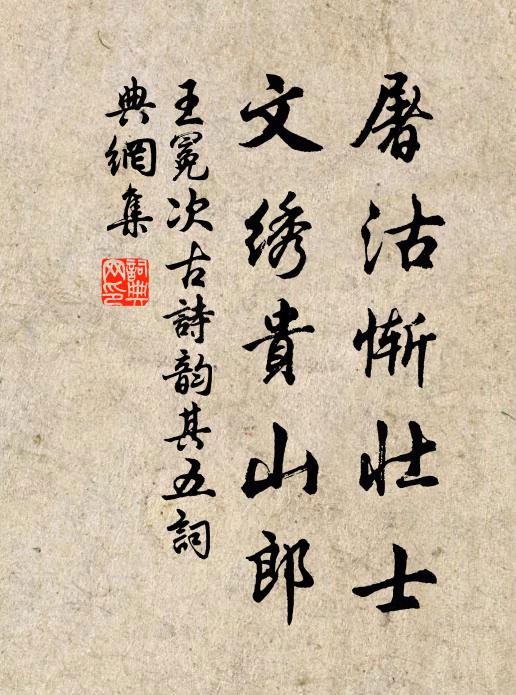 屠沽惭壮士
文綉貴山郎
王冕次古詩韵其五詞
典網集
詞典网印